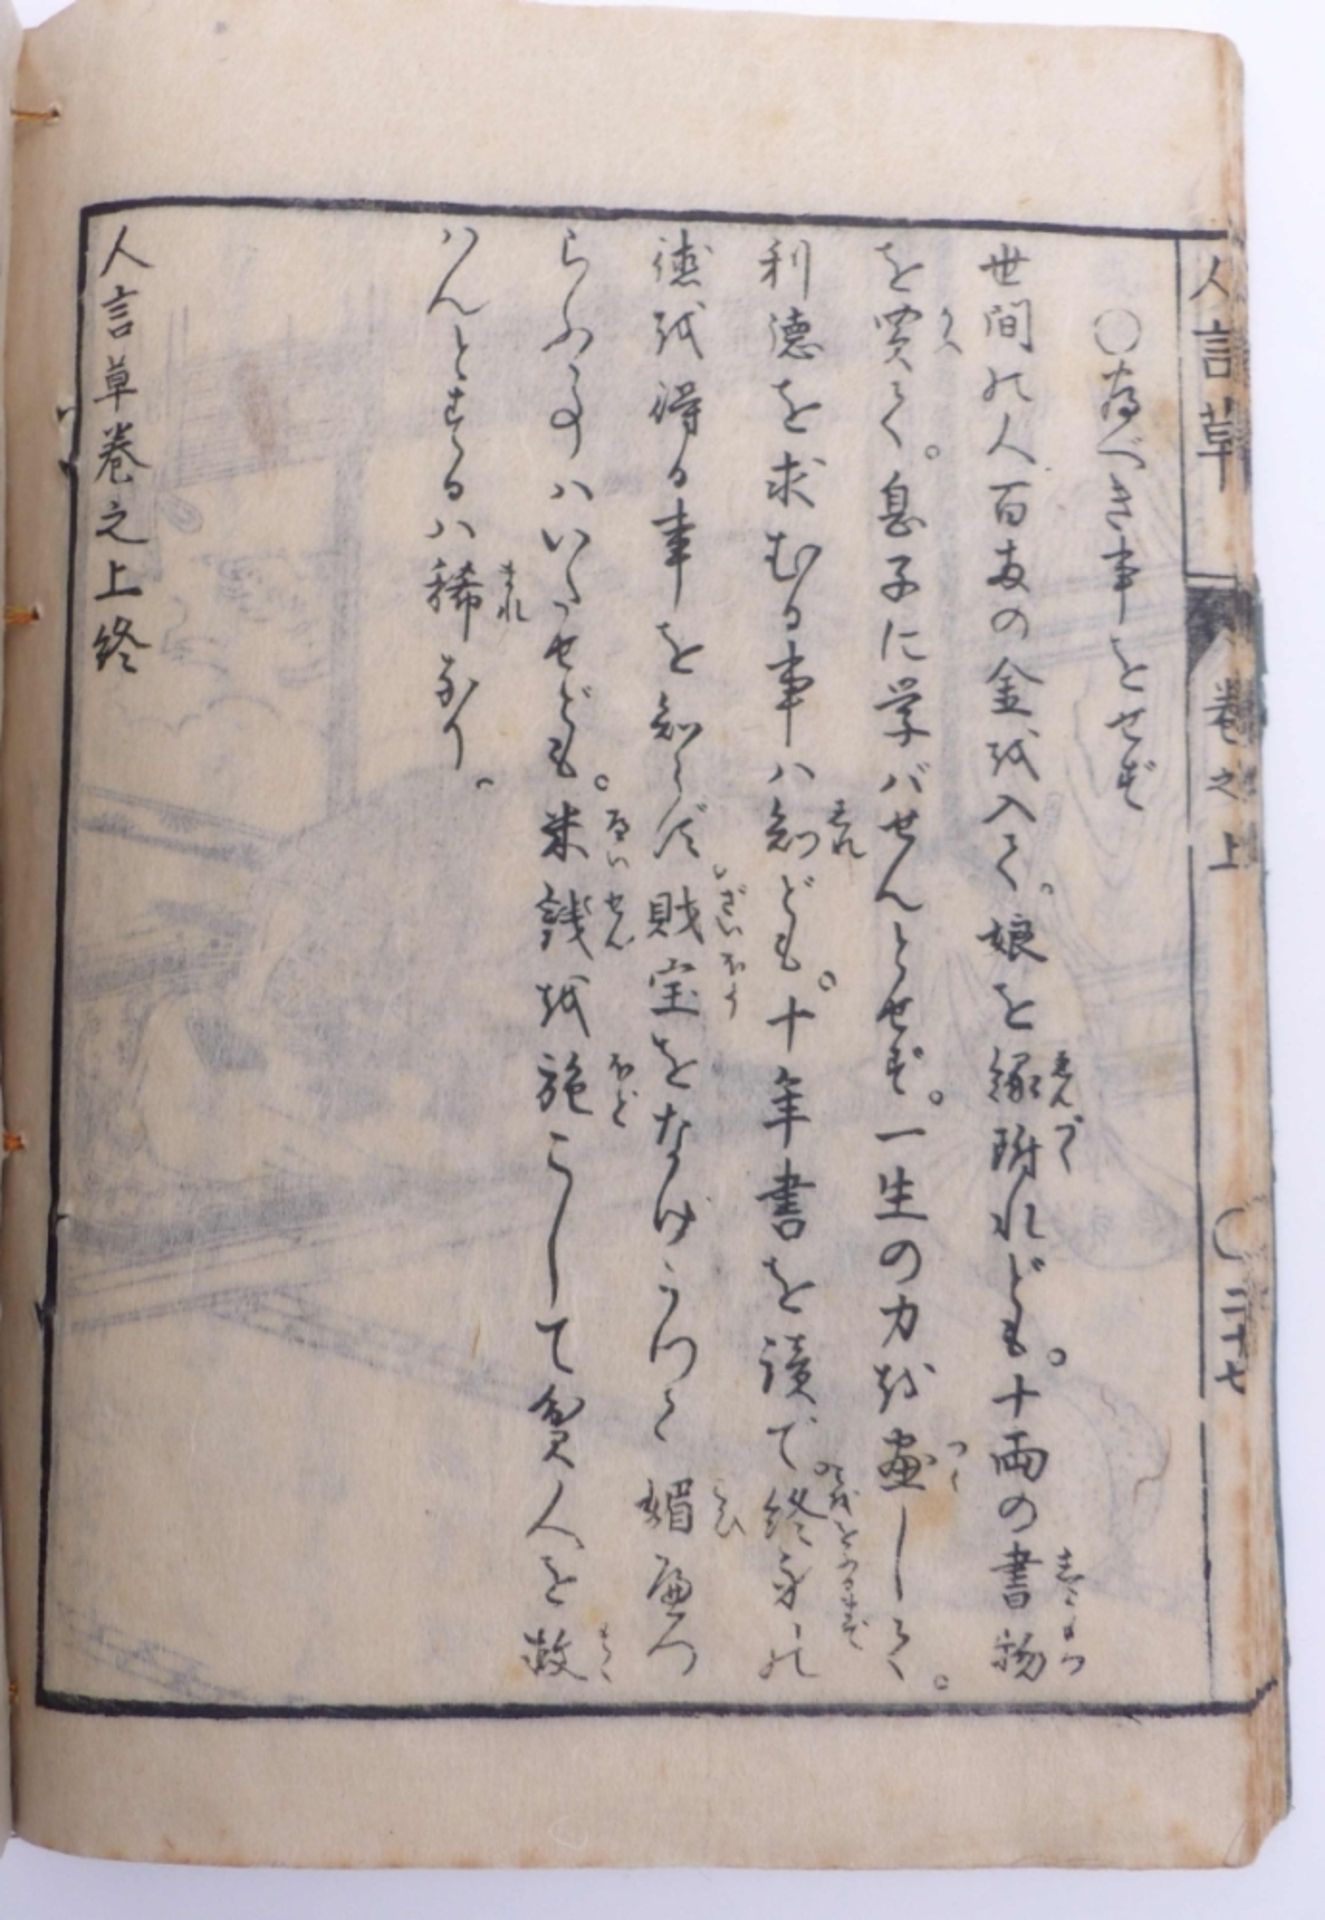 人言草
巻之上
〇二十七
〇為べき事をせず
世間の人百両の金を入て。娘を縁附れども。十両の書物
を買て。息子に学バせんとせず。一生の力を尽して。
利徳を求むる事ハ知ども。十年書を読で。終身の
徳を得る事を知らず。財宝をなげうつて媚
らふ事ハいたせども。米銭を施こして貧人を救
ハんとするハ稀なり。
人言草巻之上終